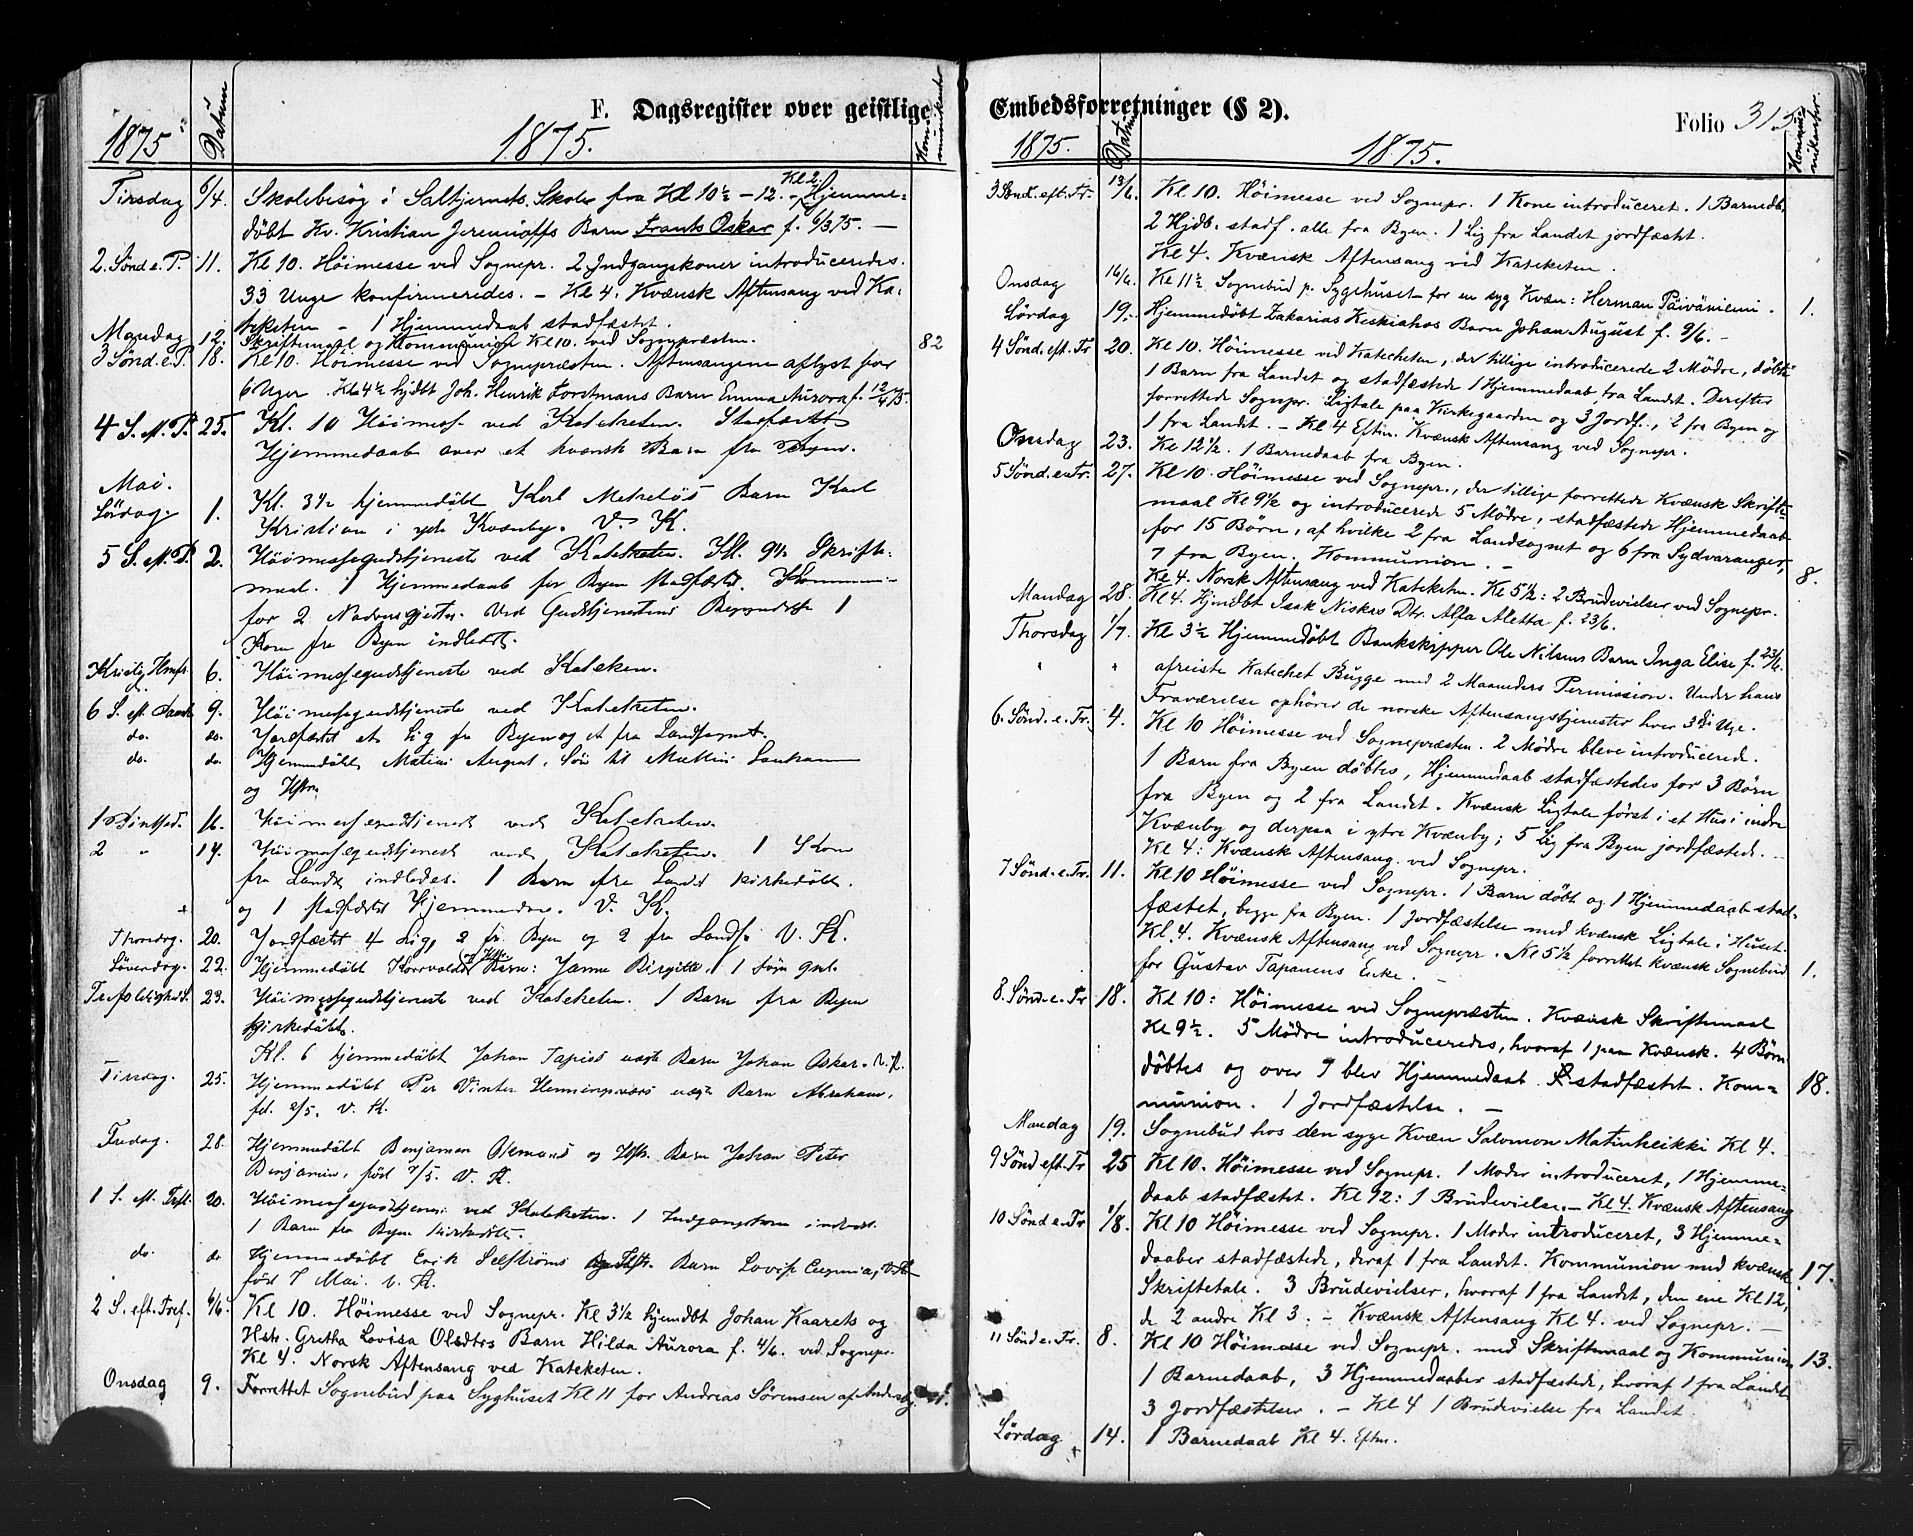 F. Dagsregister over geistlige
1875 Datum 1875. Kommunikanter
Tirsdag 6/4. Skolebesøg i Saltjernets Skole fra Kl 10½ – 12. Kl 2 Hjemme-
døbt Kv. Kristian Jeremioffs Barn Frants Oskar f. 6/3 75. —
2. Sønd e. P. 11. Kl 10. Høimesse ved Sognepr. 2 Indgangskoner introduceredes.
33 Unge konfirmeredes. – Kl 4. Kvænsk Aftensang ved Ka-
teketen – 1 Hjemmedaab stadfæstet.
Mandag 12. Skriftemaal og Kommunion Kl 10. ved Sognepræsten. 82
3 Sønd. e. P. 18. Kl 10. Høimesse ved Sognepræsten. Aftensangene aflyst for
6 Uger. Kl 4½ hjdbt Joh. Henrik Forstmans Barn Emma Aurora f. 12/4 75.
4 S. eft. P. 25. Kl. 10 Høimesse ved Kateketen. Stadfæstet
Hjemmedaab over et kvænsk Barn fra Byen.
Mai.
Lørdag. 1. Kl. 3½ hjemmedøbt Karl Barn Karl
Kristian i ydr Kvænby. V. K.
5 S. eft. P. 2. Høimessegudstjeneste ved Kateketen. Kl. 9½ Skrifte-
maal. 1 Hjemmedaab for Byen stadfæstet. Kommuni-
for 2 Nadvergjester. Ved Gudstjenestens Begyndelse 1
Kone fra Byen indledet.
Kristi Hmfr. 6. Høimessegudstjeneste ved Kateken.
6 S. eft. Paask 9. Høimessegudstjeneste ved Kateketen.
do. do. Jordfæstet et Lig fra Byen og et fra Landsognet.
do. do Hjemmedøbt Matias August, Søn til
og Hstr.
1 Pintsed. 16. Høimessegudstjeneste ved Kateketen.
2 " 17. Høimessegudstjeneste ved Kateketen. 1 Kone
fra Landet indledes. 1 Barn fra Landet kirkedøbt.
og 1 stadfæstet Hjemmedøbt. V. K.
Thorsdag. 20. Jordfæstet 4 Lig, 2 fr. Byen og 2 fra Lands. V. K.
Løverdag. 22. Hjemmedøbt Barn: Janna Birgitte. 1
Trefoldigheds. 23. Høimessegudstjeneste ved Kateketen. 1 Barn fra Byen
kirkedøbt.
Kl. 6 hjemmedøbt Johan Tapios Barn Johan Oskar. V. K.
Tirsdag. 25. Hjemmedøbt Per Vinter Henningsvärs Barn Abraham,
fd. 2/5. V. K.
Fredag. 28. Hjemmedøbt Benjamin og Hstr. Barn Johan Peter
Benjamin, fød 7/5. V. K.
1 S. eft. Trft. 30. Høimessegudstjeneste ved Kateketen. 1 Indgangskone indledet.
1 Barn fra Byen kirkedøbt.
do. do Hjemmedøbt Erik Selfströms Hstr. Barn Lovise Eugenia, V. K
født 7 Mai. V. K.
2 S. eft. Tref. 6/6. Kl 10. Høimesse ved Sognepr. Kl 3½ hjemdbt Johan Kaarets og
Hstr. Gretha Lovisa Olsdtrs Barn Hilda Aurora f. 4/6. ved Sognepr.
Kl 4. Norsk Aftensang ved Kateketen.
Onsdag 9. Forrettet Sognebud paa Syghuset Kl 11 for Andreas Sørensen af Andersby. 1.
Embedsforretninger (§ 2). Folio 315
1875. Datum 1875. Kommunikanter.
3 Sønd. eft. Tr. 13/6. Kl 10. Høimesse ved Sognepr. 1 Kone introduceret. 1 Barnedb,
2 Hjdb. stadf. alle fra Byen. 1 Lig fra Landet jordfæstet.
Kl 4. Kvænsk Aftensang ved Kateketen.
Onsdag 16/6. Kl 11½ Sognebud p. Sygehuset for en syg Kvæn: Herman Päivänienii. 1.
Lørdag 19. Hjemmedøbt Zakarias Keskiahos Barn Johan August f. 9/6. –
4 Sønd. eft. Tr 20. Kl 10. Høimesse ved Katecheten, der tillige introducerede 2 Mødre, døbte
1 Barn fra Landet og stadfæstede 1 Hjemmedaab fra Landet. Derefter
forrettede Sognepr. Ligtale paa Kirkegaarden og 3 Jordf., 2 fra Byen og
1 fra Landet. – Kl 4 Eftm. Kvænsk Aftensang ved Sognepr.
Onsdag 23. Kl 12½. 1 Barnedaab fra Byen.
5 Sønd. e. Tr. 27. Kl 10. Høimesse ved Sognepr., der tillige forrettede Kvænsk Skrifte-
maal Kl 9½ og introducerede 5 Mødre, stadfæstede Hjemmedaab
for 15 Børn, af hvilke 2 fra Landsognet og 6 fra Sydvaranger,
7 fra Byen. Kommunion. – 8.
Kl 4. Norsk Aftensang ved Kateketen. Kl 5½: 2 Brudevielser ved Sognepr.
Mandag 28. Kl 4. Hjmdbt Isak Niskas Dtr. Alfa Aletta f. 23/6.
Thorsdag 1/7. Kl 3½ Hjemmedøbt Bankskipper Ole Nilsens Barn Inga Elise f. 23/6.
" " afreiste Katechet Bugge med 2 Maaneders Permission. Under hans
Fraværelse ophører de norske Aftensangstjenester hver 3die Uge.
6. Sønd. e. Tr. 4. Kl 10 Høimesse ved Sognepræsten. 2 Mødre bleve introducerede.
1 Barn fra Byen døbtes, Hjemmedaab stadfæstedes for 3 Børn
fra Byen og 2 fra Landet. Kvænsk Ligtale først i et Hus i indre
Kvænby og derpaa i ytre Kvænby; 5 Lig fra Byen jordfæstede. –
Kl 4: Kvænsk Aftensang ved Sognepr.
7 Sønd. e. Tr. 11. Kl 10 Høimesse ved Sognepr. 1 Barn døbt og 1 Hjemmedaab stad-
fæstet, begge fra Byen. 1 Jordfæstelse med kvænsk Ligtale i Huset.
Kl. 4. Kvænsk Aftensang ved Sognepr. Kl 5½ forrettet kvænsk Sognebud
for Gustav Tapanens Enke – 1.
8. Sønd. e. Tr 18. Kl 10: Høimesse ved Sognepræsten. Kvænsk Skriftemaal
Kl 9½. 5 Mødre introduceredes, hvoraf 1 paa Kvænsk. 4 Børn
døbtes og over 7 blev Hjemmedaab stadfæstet. Kom- 18.
munion. 1 Jordfæstelse. –
Mandag 19. Sognebud hos den syge Kvæn Salomon Matinheikki Kl 4.
9 Sønd eft. Tr 25 Kl 10. Høimesse ved Sognepr. 1 Moder introduceret, 1 Hjemme-
daab stadfæstet. Kl 12: 1 Brudevielse. – Kl 4. Kvænsk Aftensang
10 Sønd e. Tr 1/8. Kl 10 Høimesse ved Sognepr. 1 Moder introduceret, 3 Hjemme-
daaber stadfæstede, deraf 1 fra Landet. Kommunion med kvænsk 17.
Skriftetale. 3 Brudevielser, hvoraf 1 fra Landet, den ene Kl 12,
de 2 andre Kl 3. – Kvænsk Aftensang Kl 4. ved Sognepr. –
11 Sønd e. Tr. 8. Kl 10 Høimesse ved Sognepr. med Skriftemaal og Kommunion 13.
1 Barnedaab, 3 Hjemmedaaber stadfæstede, hvoraf 1 fra Landet
3 Jordfæstelser. – Kl 4 1 Brudevielse fra Landet.
Lørdag 14. 1 Barnedaab Kl 4. Eftm.